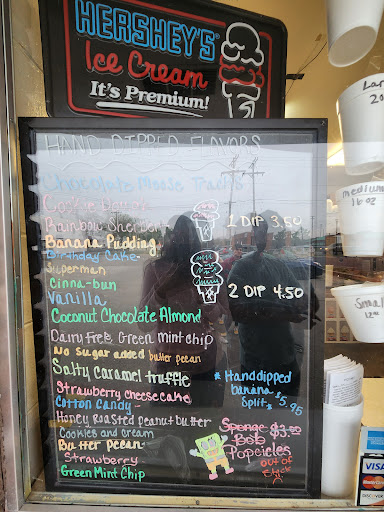 HERSHEY'S
Ice Cream
It's Premium!
HAND DIPPED FLAVORS
Chocolate Moose Tracks
Cookie Dough
Rainbow Sherbert
Banana Pudding
Birthday Cake
Superman
Cinna-bun
Vanilla
Coconut Chocolate Almond
Dairy Free Green mint chip
No Sugar added butter pecan
Salty Caramel truffle
Strawberry cheesecake
Cotton Candy
Honey Roasted peanut butter
Cookies and cream
Butter Pecan
Strawberry
Green Mint Chip
1 DIP 3.50
2 DIP 4.50
* Hand dipped
banana
Split * $5.95
Sponge $3.00
Bob
Popcicles
out of
Stock
20
medium
16 oz
Small
12oz
VISA
MasterCard
DISCOVER